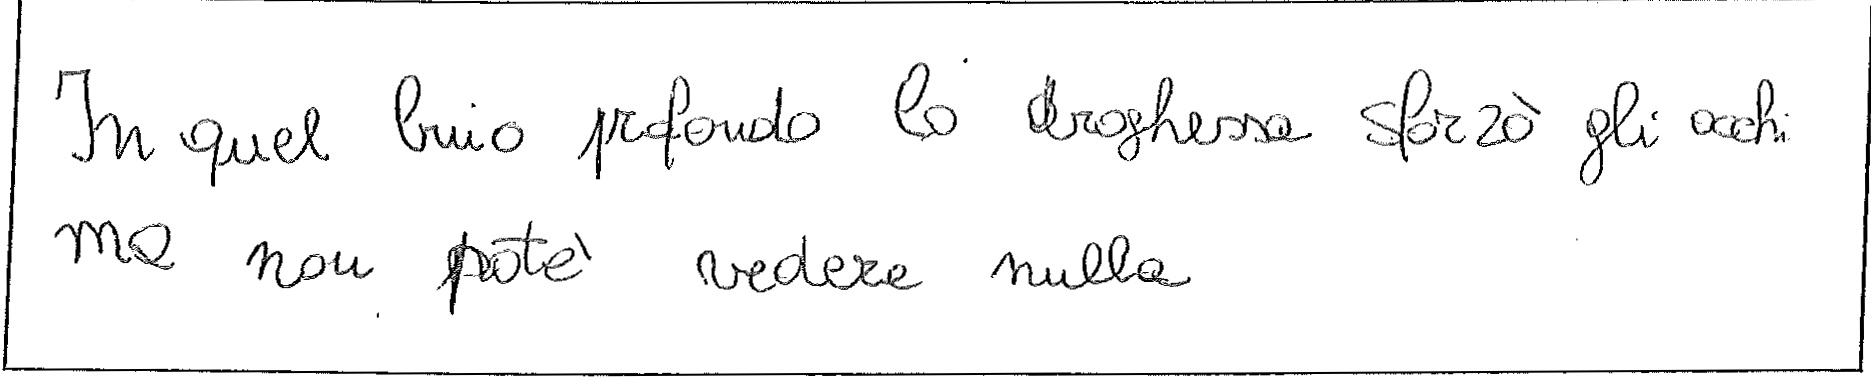 In quel buio prfondo lo droghessa sforzò gli occhi
ma non potè vedere nulla